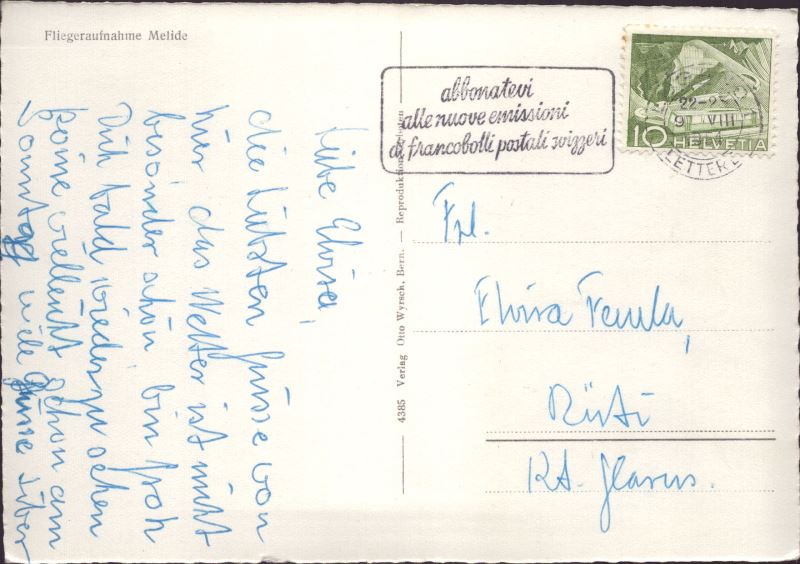 Fliegeraufnahme Melide
Liebe Elvira,
die Letzten Grüsse von
hier das Wetter ist nicht
besonder schön, bin froh
Dich bald wieder zu sehen
komme vielleicht schon am
Sonntag viele Grüsse
4385 Verlag Otto Wyrsch, Bern. — Reproduktion verboten
abbonatevi
alle nuove emissioni
di francobolli postali svizzeri
10 HELVETIA
22-
9 VIII
LETTERE
Frl.
Elvira
Rüti
Kt. Glarus.